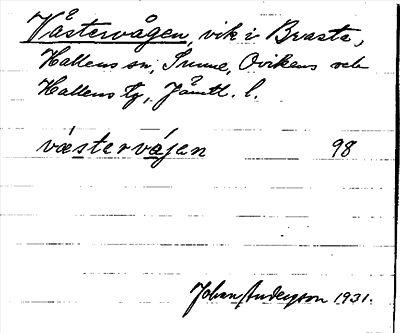 Våstervågen, vik i Brasta,
Hallens sn, Sunne, Ovikens och
Hallens tg, Jämtl. l.
væstervájen 98
Johan Anderson 1931.